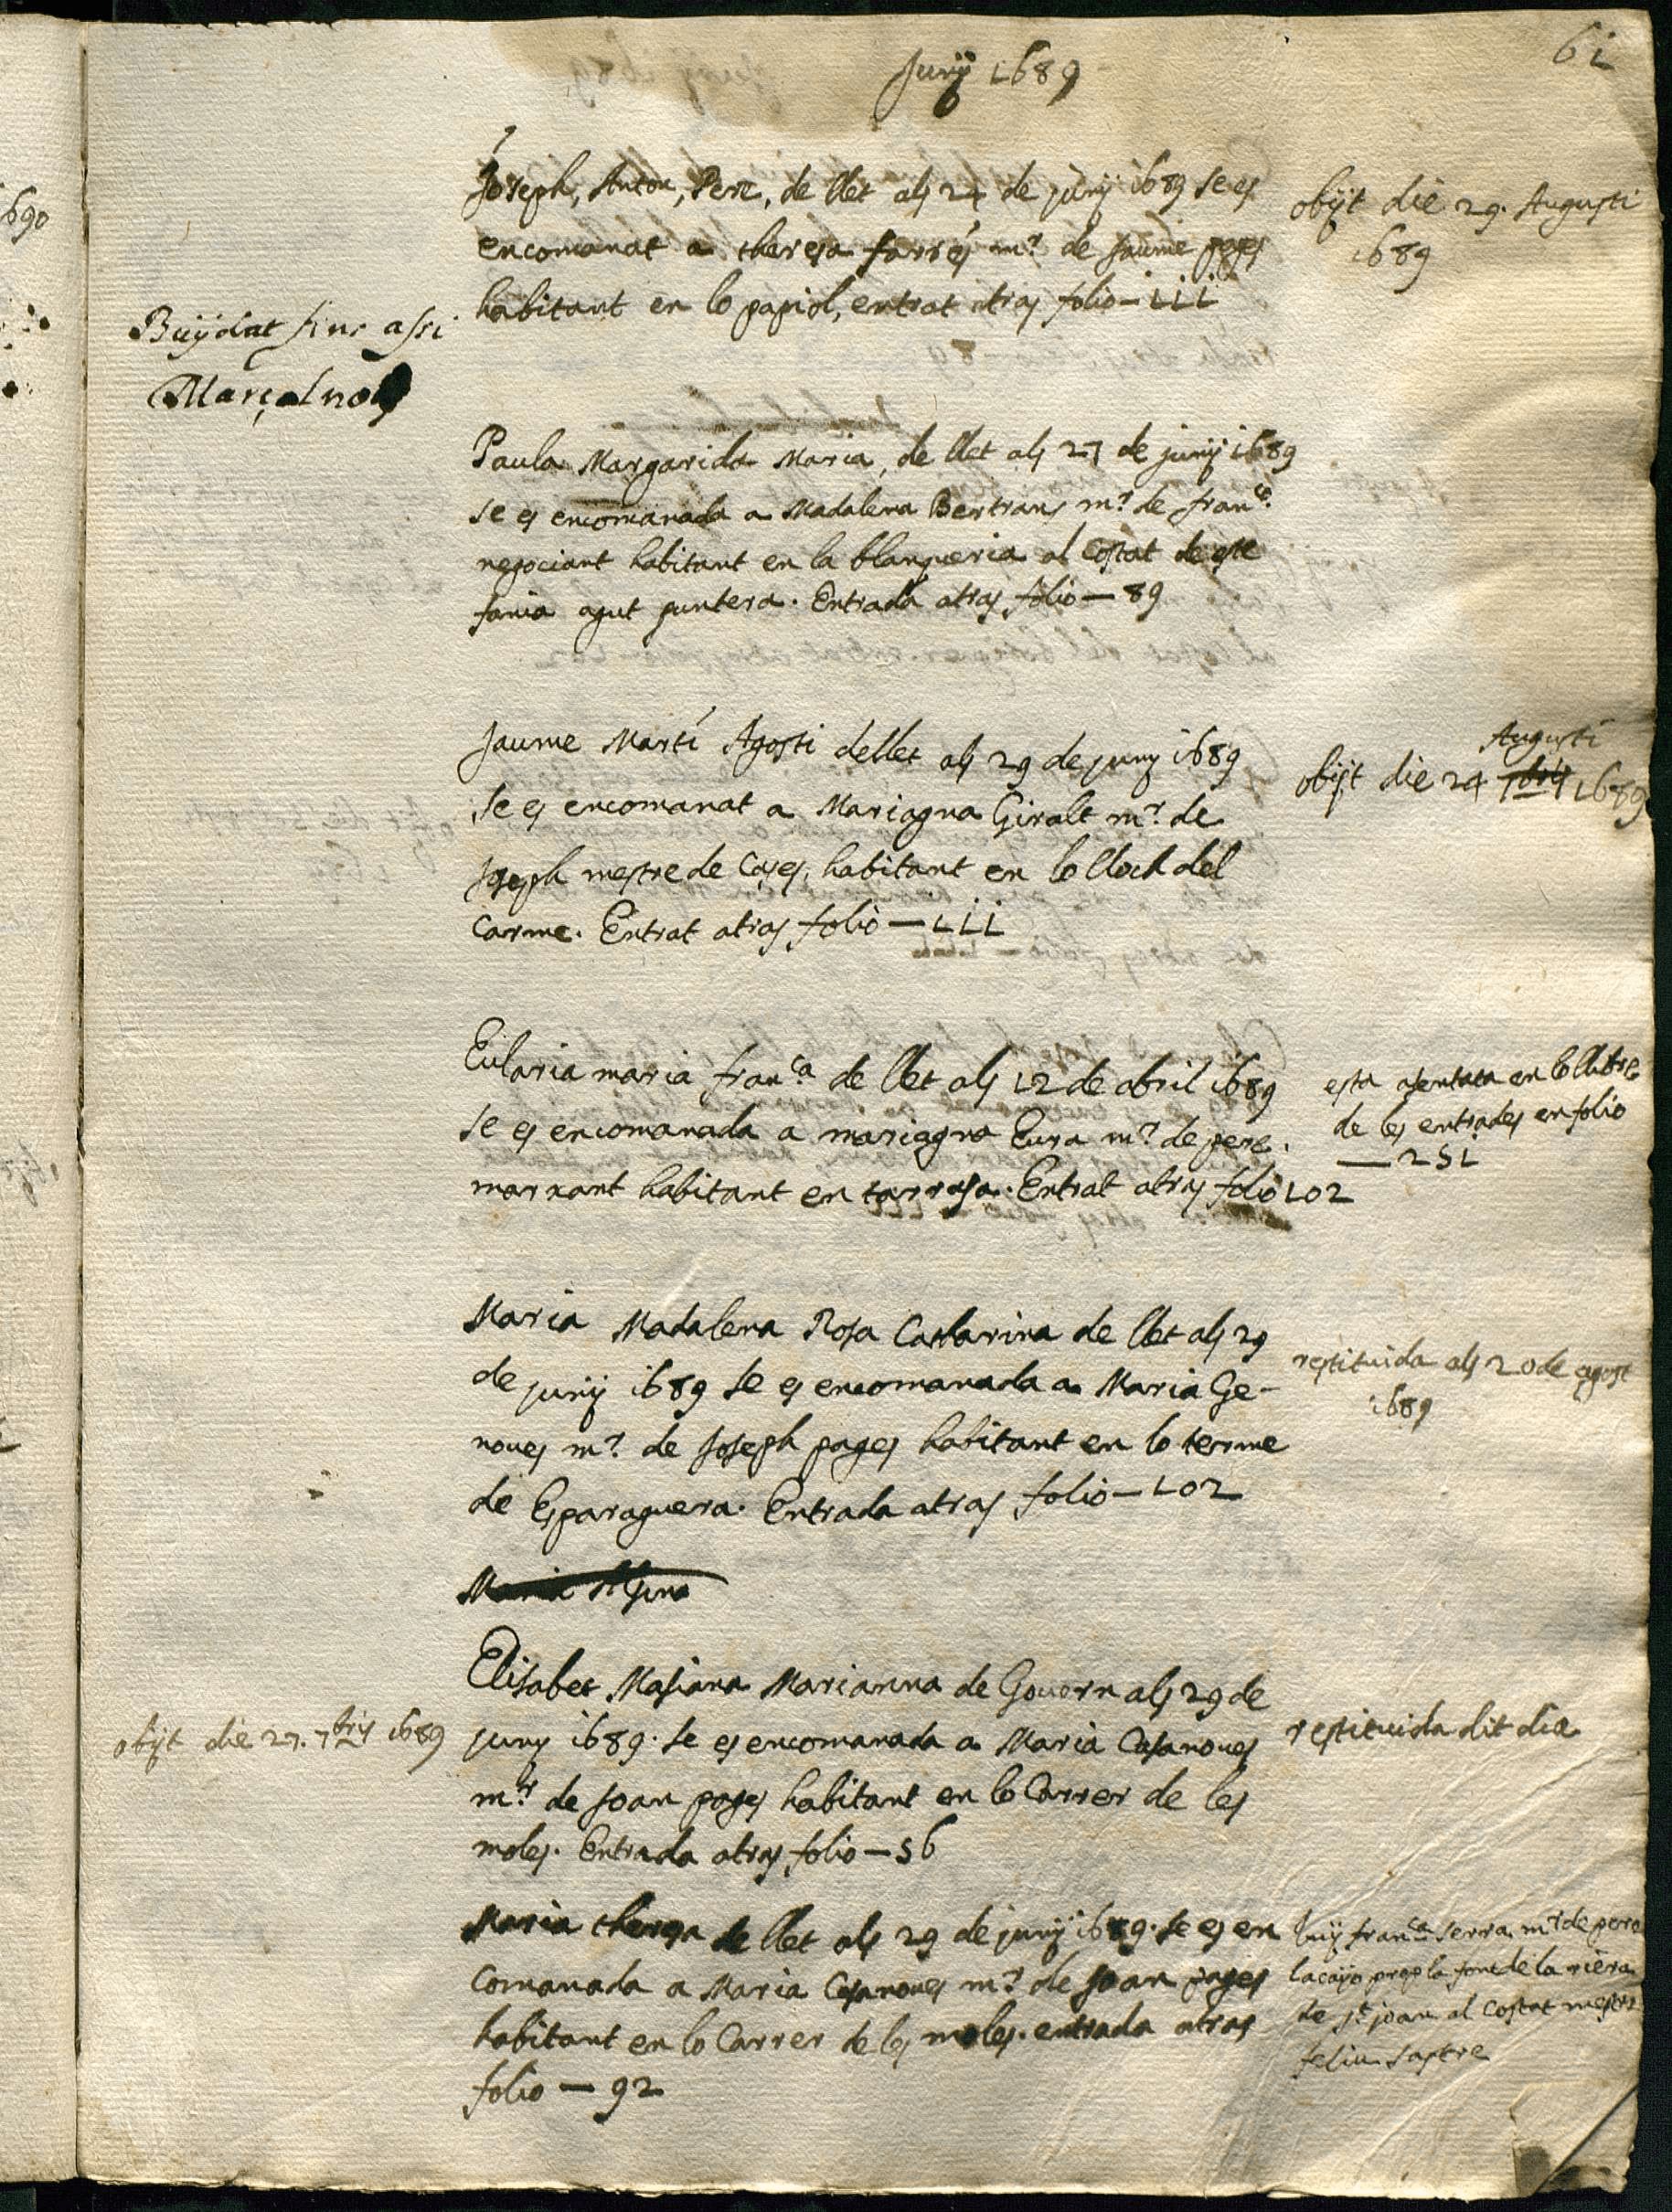 61
Juny 1689
Joseph, Anton, Pere, de llet als 24 de juny 1689 se es
encomanat a theresa farres mr. de Jaume pages
habitant en lo papiol, entrat atras folio — 111
obijt die 29. Augusti
1689
Buydat fins assi
Marçal not
Paula Margarida Maria, de llet als 27 de juny 1689
se es encomanada a Madalena Bertrans mr. de franco.
negociant habitant en la blanqueria al costat de este
fania agut puntera. Entrada atras folio — 89
Jaume Martí Agosti de llet als 29 de juny 1689
se es encomanat a Mariagna Giralt mr. de
Joseph mestre de Cases, habitant en lo lloch del
Carme. Entrat atras folio — 111
Augusti
obijt die 24 7bris 1689
Eularia maria franca de llet als 12 de abril 1689
se es encomanada a mariagna Eura mr. de pere
marxant habitant en tarrasa. Entrat atras folio 102
esta asentada en lo llibre
de les entrades en folio
— 251
Maria Madalena Rosa Catharina de llet als 29
de juny 1689 se es encomanada a Maria Ge-
noves mr. de Joseph pages habitant en lo terme
de Esparaguera. Entrada atras folio — 102
restituida als 20 de agost
1689
Maria
Elisabet Masiana Marianna de Govern als 29 de
juny 1689. se es encomanada a Maria Casanoves
mr. de Joan pages habitant en lo Carrer de les
moles. Entrada atras folio — 56
obijt die 27. 7bris 1689
restituida dit dia
Maria theresa de llet als 29 de juny 1689. se es en
Comanada a Maria Casanoves mr. de Joan pages
habitant en lo Carrer de les moles. entrada atras
folio — 92
Vuy franca serra mr de pere
lacayo prop la font de la riera
de st joan al costat mestre
feliu sastre